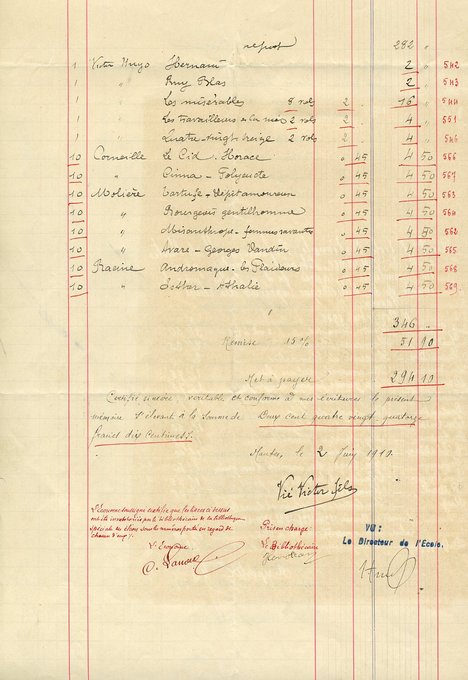 report 282 "
1 Victor Hugo Hernani 2 " 542
1 " Ruy Blas 2 " 543
1 " Les misérables 8 vols 2 . 16 " 544
1 " Les travailleurs de la mer 2 vols 2 . 4 " 551
1 " Quatre vingt treize 2 vols 2 . 4 " 546
10 Corneille Le Cid . Horace 0 45 4 50 566
10 " Cinna - Polyeucte 0 45 4 50 567
10 Molière Tartufe - Dépit amoureux 0 45 4 50 563
10 " Bourgeois gentilhomme 0 45 4 50 564
10 " Misanthrope - femmes savantes 0 45 4 50 562
10 " Avare - Georges Dandin 0 45 4 50 565
10 Racine Andromaque - les Plaideurs 0 45 4 50 568
10 " Esther - Athalie 0 45 4 50 569
346 "
Remise 15 % 51 90
Net à payer 294 10
Certifié sincère, véritable et conforme à mes écritures le présent
mémoire s'élevant à la somme de Deux cent quatre vingt quatorze
francs dix centimes.
Nantes, le 2 Juin 1910.
Vié Victor fils
L'Econome soussigné certifie que les livres ci dessus
ont été par le bibliothécaire de la Bibliothèque
sous les numéros portés en regard de
chacun d'eux.
L'Econome
Pris en charge
Le Bibliothécaire
VU :
Le Directeur de l'Ecole.